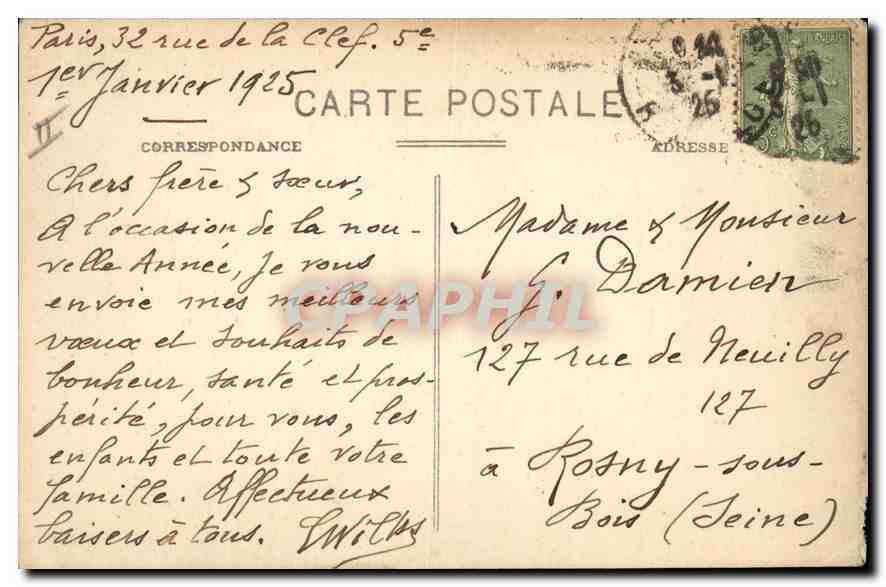 Paris, 32 rue de la Clef. 5e
1er Janvier 1925
CARTE POSTALE
CORRESPONDANCE
ADRESSE
Chers frère & sœur,
A l'occasion de la nou-
velle Année, je vous
envoie mes meilleurs
vœux et souhaits de
bonheur, santé et pros-
périté, pour vous, les
enfants et toute votre
famille. Affectueux
baisers à tous.
Madame & Monsieur
G. Damien
127 rue de Neuilly
127
à Rosny-sous-
Bois (Seine)
CPAPHIL